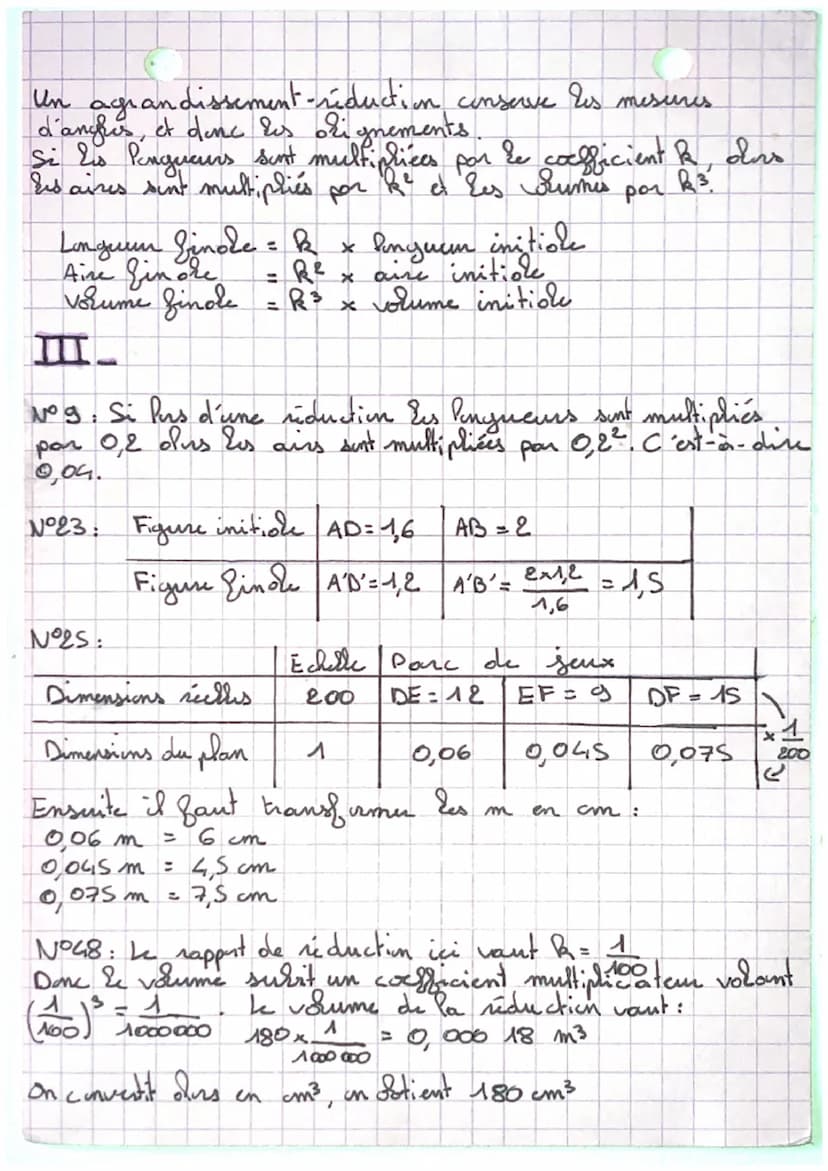 Un agrandissement-réduction conserve les mesures
d'angles, et donc les alignements.
Si les longueurs sont multipliées par le coefficient k, alors
les aires sont multipliés par k² et les volumes par k³.
Longueur finale = k × longueur initiale
Aire finale = k² × aire initiale
Volume finale = k³ × volume initiale
III_
N°9 : Si lors d'une réduction les longueurs sont multipliés
par 0,2 alors les airs sont multipliées par 0,2². C'est-à-dire
0,04.
N°23 : Figure initiale | AD = 1,6 | AB = 2
Figure finale | A'D' = 1,2 | A'B' = 2×1,2/1,6 = 1,5
N°25 :
Echelle | Parc de jeux
Dimensions réelles | 200 | DE = 12 | EF = 9 | DF = 15
Dimensions du plan | 1 | 0,06 | 0,045 | 0,075 × 1/200
Ensuite il faut transformer les m en cm :
0,06 m = 6 cm
0,045 m = 4,5 cm
0,075 m = 7,5 cm
N°48 : Le rapport de réduction ici vaut k = 1/100
Donc le volume subit un coefficient multiplicateur valant
(1/100)³ = 1/1000000 . Le volume de la réduction vaut :
180 × 1/1000 000 = 0,000 18 m³
On convertit alors en cm³, on obtient 180 cm³